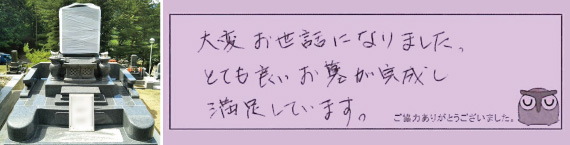 大変お世話になりました。
とても良いお墓が完成し
満足しています。
ご協力ありがとうございました。